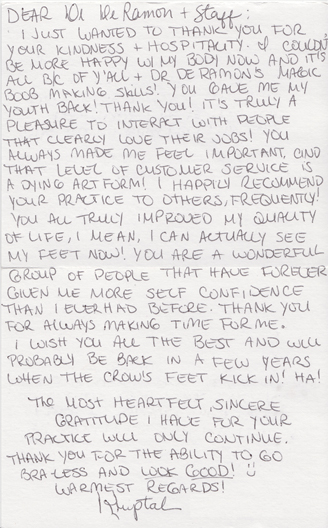 DEAR DR DERAMON + STAFF:
I JUST WANTED TO THANK YOU FOR
YOUR KINDNESS + HOSPITALITY. I COULDN'T
BE MORE HAPPY W/ MY BODY NOW AND IT'S
ALL B/C OF Y'ALL + DR DERAMON'S MAGIC
BOOB MAKING SKILLS! YOU GAVE ME MY
YOUTH BACK! THANK YOU! IT'S TRULY A
PLEASURE TO INTERACT WITH PEOPLE
THAT CLEARLY LOVE THEIR JOBS! YOU
ALWAYS MADE ME FEEL IMPORTANT, AND
THAT LEVEL OF CUSTOMER SERVICE IS
A DYING ART FORM! I HAPPILY RECOMMEND
YOUR PRACTICE TO OTHERS, FREQUENTLY!
YOU ALL TRULY IMPROVED MY QUALITY
OF LIFE, I MEAN, I CAN ACTUALLY SEE
MY FEET NOW! YOU ARE A WONDERFUL
GROUP OF PEOPLE THAT HAVE FOREVER
GIVEN ME MORE SELF CONFIDENCE
THAN I EVER HAD BEFORE. THANK YOU
FOR ALWAYS MAKING TIME FOR ME.
I WISH YOU ALL THE BEST AND WILL
PROBABLY BE BACK IN A FEW YEARS
WHEN THE CROW'S FEET KICK IN! HA!
THE MOST HEARTFELT, SINCERE
GRATITUDE I HAVE FOR YOUR
PRACTICE WILL ONLY CONTINUE.
THANK YOU FOR THE ABILITY TO GO
BRA-LESS AND LOOK GOOD! :)
WARMEST REGARDS!